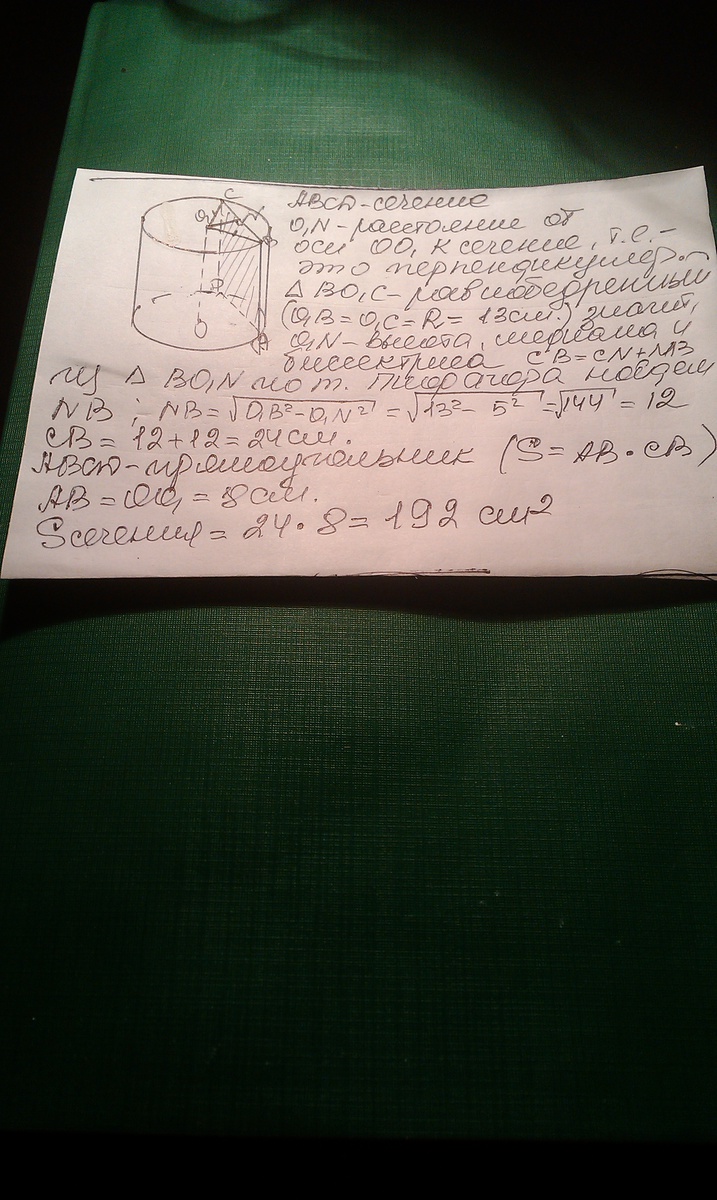 C
O₁
N
B
D
O
A
ABCD-сечение
O₁N-расстояние от
оси OO₁ к сечение, т.е.-
это перпендикуляр.
△ BO₁C-равнобедренный
(O₁B = O₁C = R = 13см.) значит,
O₁N-высота, медиана и
биссектриса CB = CN + NB
Из △ BO₁N по т. Пифагора найдем
NB ; NB = √O₁B² - O₁N² = √13² - 5² = √144 = 12
CB = 12 + 12 = 24см.
ABCD-прямоугольник (S = AB · CB)
AB = OO₁ = 8см.
Sсечения = 24 · 8 = 192 см²